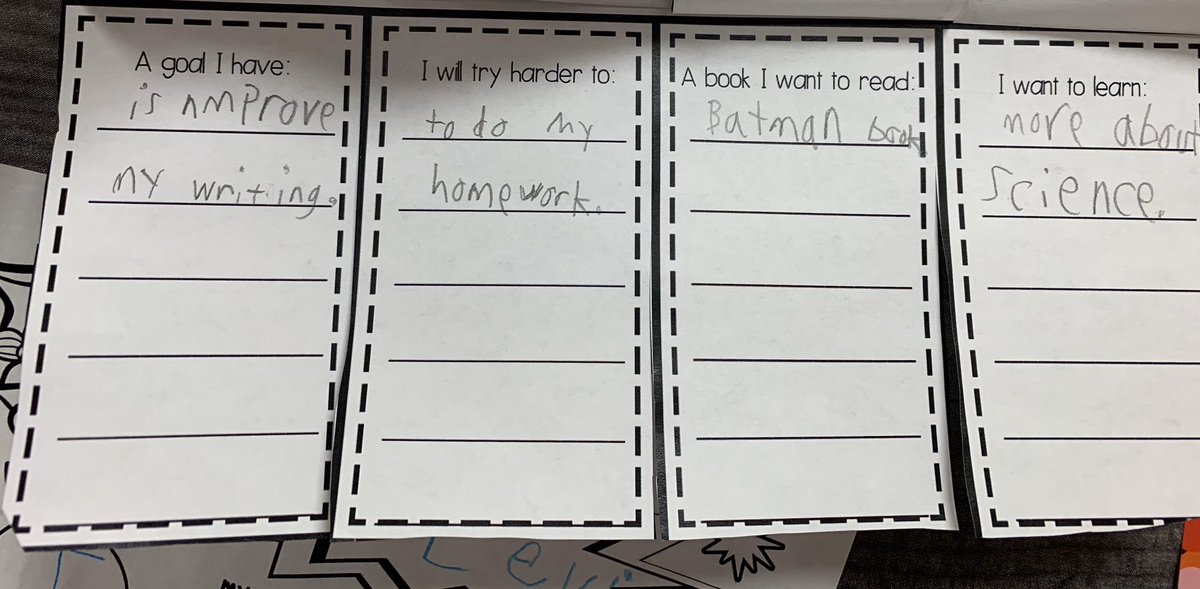 A goal I have:
is nmprove
my writing.
I will try harder to:
to do my
homework.
A book I want to read:
Batman book
I want to learn:
more about
Science.